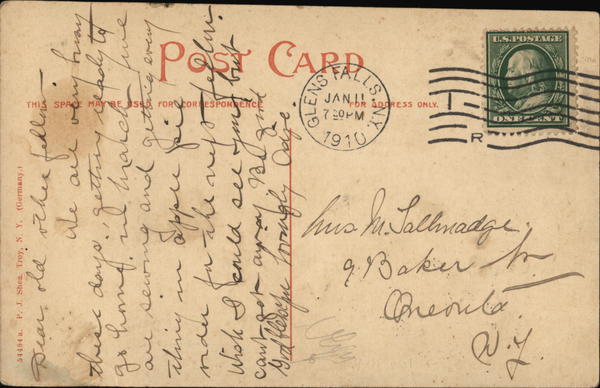 POST CARD
THIS SPACE MAY BE USED FOR CORRESPONDENCE
FOR ADDRESS ONLY.
GLENS FALLS, N.Y.
JAN 11
7 30 PM
1910
U.S. POSTAGE
ONE CENT
1
R
54494 a. P. J. Shea, Troy, N. Y. (Germany.)
Dear old other fellow:
We are very busy
these days getting ready to
go home in March. We
are sewing and getting every
thing in apple pie
order for the next fellow.
Wish I could see you but
can't get away. Be good
Goodbye Lovingly
Mrs M. Tallmadge.
9 Baker St
Oneonta
N.Y.